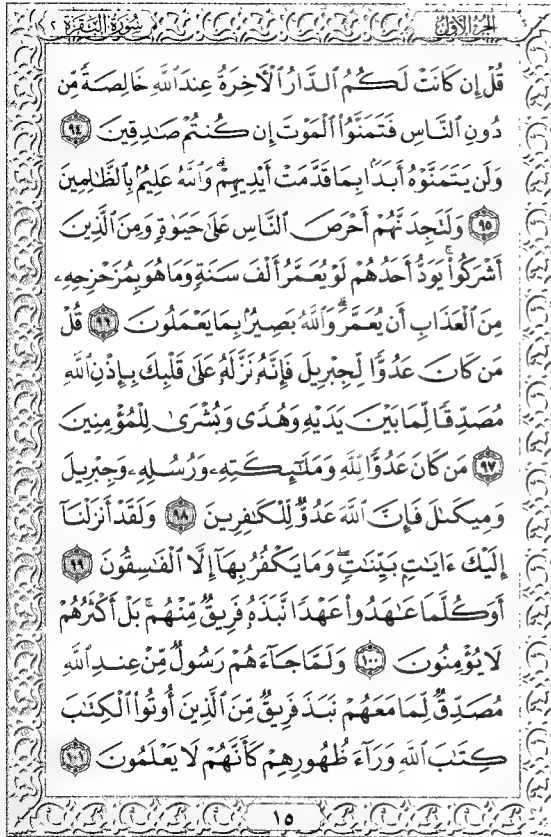 الجزء الأول سورة البقرة ٢
قُلْ إِن كَانَتْ لَكُمُ ٱلدَّارُ ٱلْأَخِرَةُ عِندَ ٱللَّهِ خَالِصَةً مِّن
دُونِ ٱلنَّاسِ فَتَمَنَّوُا۟ ٱلْمَوْتَ إِن كُنتُمْ صَادِقِينَ ٩٤
وَلَن يَتَمَنَّوْهُ أَبَدًۢا بِمَا قَدَّمَتْ أَيْدِيهِمْ ۗ وَٱللَّهُ عَلِيمٌۢ بِٱلظَّالِمِينَ
٩٥ وَلَتَجِدَنَّهُمْ أَحْرَصَ ٱلنَّاسِ عَلَىٰ حَيَوٰةٍ وَمِنَ ٱلَّذِينَ
أَشْرَكُوا۟ ۚ يَوَدُّ أَحَدُهُمْ لَوْ يُعَمَّرُ أَلْفَ سَنَةٍ وَمَا هُوَ بِمُزَحْزِحِهِۦ
مِنَ ٱلْعَذَابِ أَن يُعَمَّرَ ۗ وَٱللَّهُ بَصِيرٌۢ بِمَا يَعْمَلُونَ ٩٦ قُلْ
مَن كَانَ عَدُوًّا لِّجِبْرِيلَ فَإِنَّهُۥ نَزَّلَهُۥ عَلَىٰ قَلْبِكَ بِإِذْنِ ٱللَّهِ
مُصَدِّقًا لِّمَا بَيْنَ يَدَيْهِ وَهُدًى وَبُشْرَىٰ لِلْمُؤْمِنِينَ
٩٧ مَن كَانَ عَدُوًّا لِّلَّهِ وَمَلَٰٓئِكَتِهِۦ وَرُسُلِهِۦ وَجِبْرِيلَ
وَمِيكَىٰلَ فَإِنَّ ٱللَّهَ عَدُوٌّ لِّلْكَٰفِرِينَ ٩٨ وَلَقَدْ أَنزَلْنَآ
إِلَيْكَ ءَايَٰتٍۭ بَيِّنَٰتٍ ۖ وَمَا يَكْفُرُ بِهَآ إِلَّا ٱلْفَٰسِقُونَ ٩٩
أَوَكُلَّمَا عَٰهَدُوا۟ عَهْدًا نَّبَذَهُۥ فَرِيقٌ مِّنْهُم ۚ بَلْ أَكْثَرُهُمْ
لَا يُؤْمِنُونَ ١٠٠ وَلَمَّا جَآءَهُمْ رَسُولٌ مِّنْ عِندِ ٱللَّهِ
مُصَدِّقٌ لِّمَا مَعَهُمْ نَبَذَ فَرِيقٌ مِّنَ ٱلَّذِينَ أُوتُوا۟ ٱلْكِتَٰبَ
كِتَٰبَ ٱللَّهِ وَرَآءَ ظُهُورِهِمْ كَأَنَّهُمْ لَا يَعْلَمُونَ ١٠١
١٥